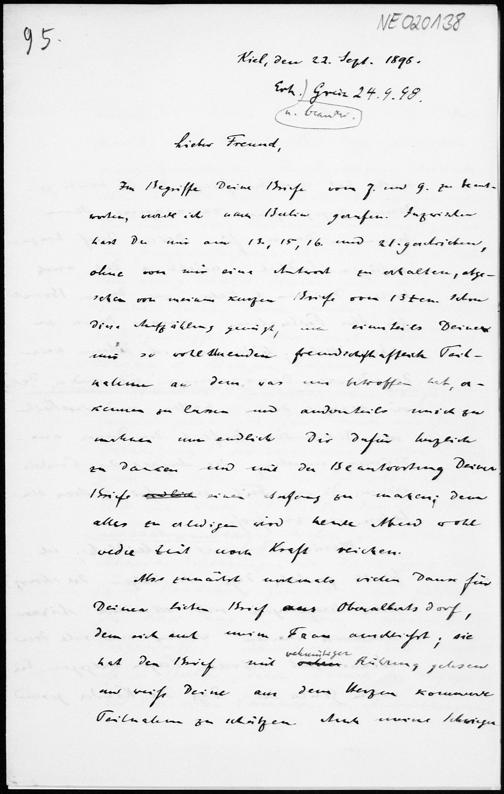 95.
NE020138
Kiel, den 22. Sept. 1898.
Erh. Greiz 24.9.98.
u. beantw.
Lieber Freund,
Im Begriffe Deine Briefe vom 7. und 9. zu beant-
worten, wurde ich nach Berlin gerufen. Inzwischen
hast Du mir am 13., 15., 16. und 21. geschrieben,
ohne von mir eine Antwort zu erhalten, abge-
sehen von meinem kurzen Briefe vom 13ten. Schon
diese Aufzählung genügt, um einerseits Deine
mir so wohlthuenden freundschaftliche Teil-
nahme an dem was uns betroffen hat, er-
kennen zu lassen und anderenteils mich zu
mahnen nun endlich Dir dafür herzlich
zu danken und mit der Beantwortung Deiner
Briefe endlich einen Anfang zu machen; denn
alles zu erledigen wird heute Abend wohl
weder Zeit noch Kraft reichen.
Also zunächst nochmals vielen Dank für
Deinen lieben Brief aus Oberalbertsdorf,
dem sich auch meine Frau anschließt; sie
hat den Brief mit wehmütiger Rührung gelesen
und weiß Deine aus dem Herzen kommende
Teilnahme zu schätzen. Auch meine Schwieger